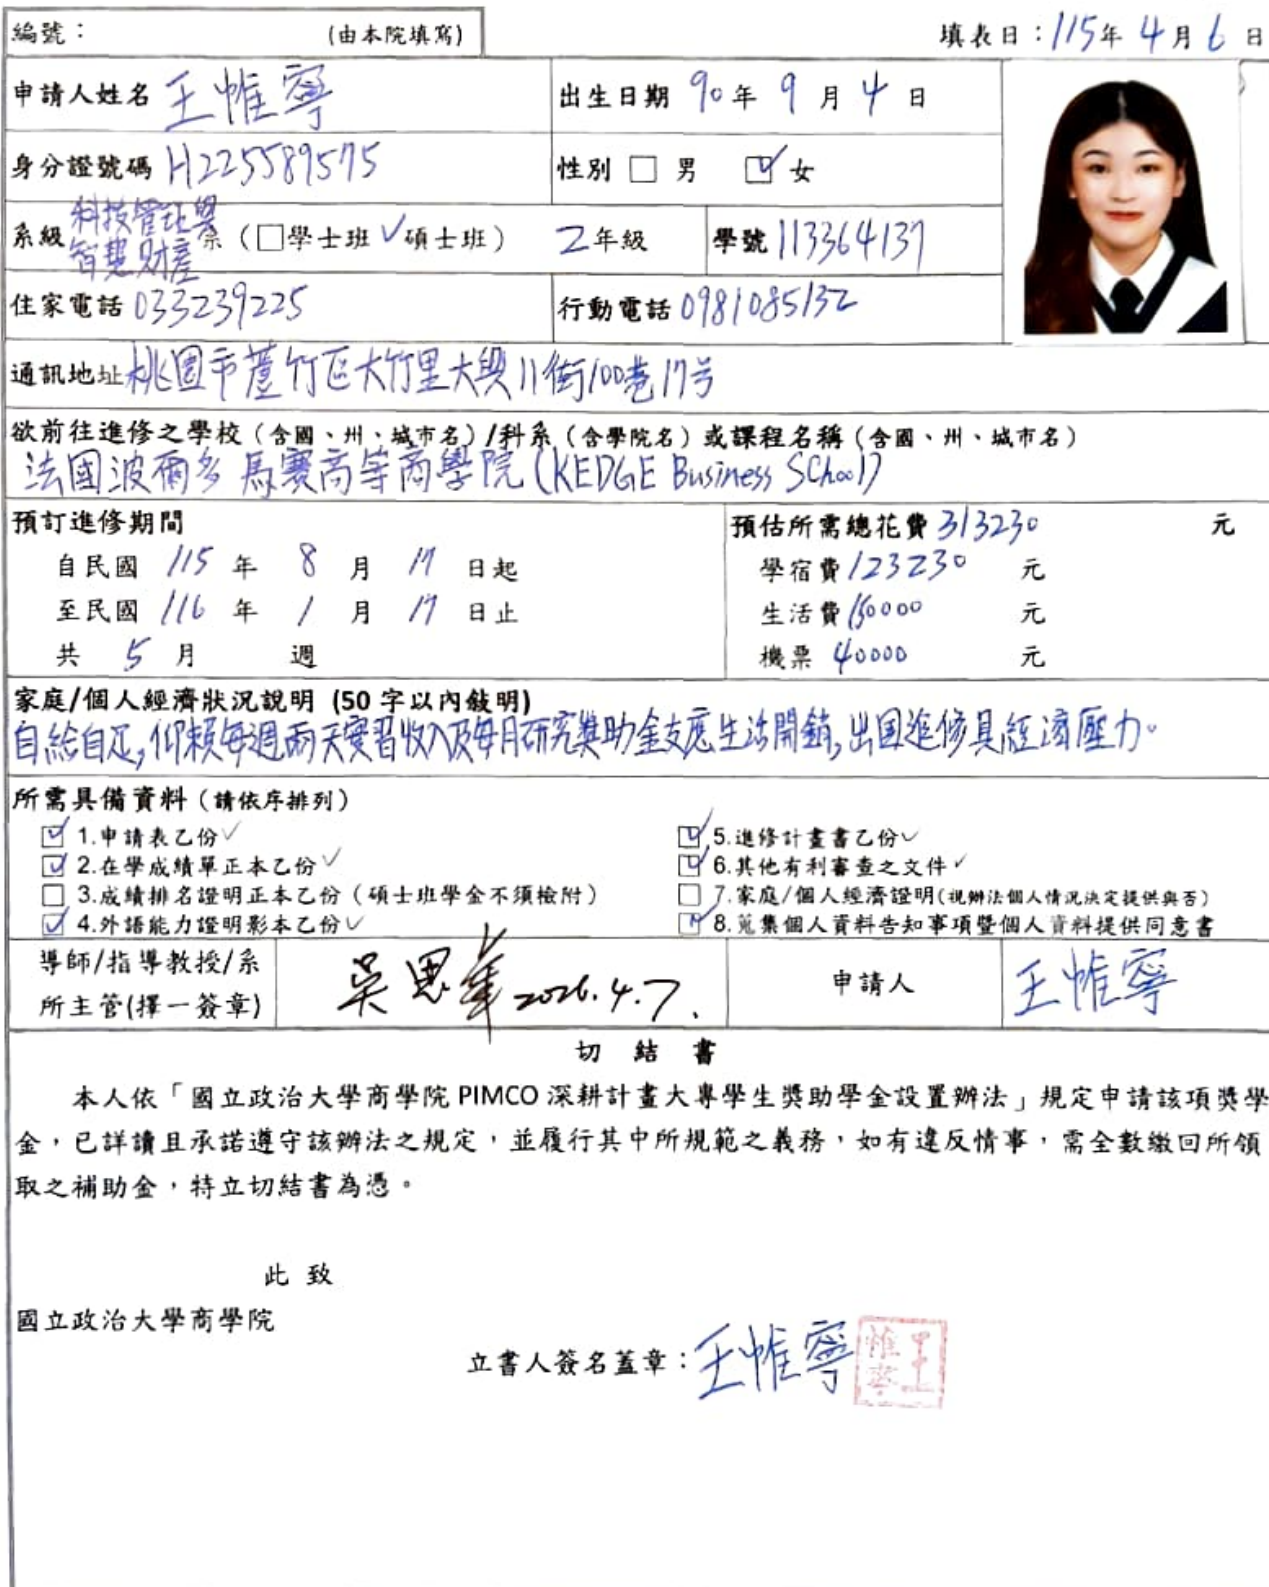 編號： (由本院填寫) 填表日：115年 4月 6日
申請人姓名 王惟寧 出生日期 90年 9月 4日
身分證號碼 H225589575 性別 □ 男 ☑ 女
系級 科技管理與智慧財產 系（□學士班 ✓碩士班） 2年級 學號 113364137
住家電話 033239225 行動電話 0981085132
通訊地址 桃園市蘆竹区大竹里大興11街100巷17号
欲前往進修之學校（含國、州、城市名）/科系（含學院名）或課程名稱（含國、州、城市名）
法國波爾多 馬賽高等商學院 (KEDGE Business School)
預訂進修期間 預估所需總花費 313230 元
自民國 115 年 8 月 17 日起 學宿費 123230 元
至民國 116 年 1 月 17 日止 生活費 150000 元
共 5 月 週 機票 40000 元
家庭/個人經濟狀況說明 (50字以內敍明)
自給自足,仰賴每週兩天實習收入及每月研究獎助金支應生活開銷,出国進修具經濟壓力。
所需具備資料（請依序排列）
☑ 1.申請表乙份✓ ☑ 5.進修計畫書乙份✓
☑ 2.在學成績單正本乙份✓ ☑ 6.其他有利審查之文件✓
□ 3.成績排名證明正本乙份（碩士班學金不須檢附） □ 7.家庭/個人經濟證明(視辦法個人情況決定提供與否)
☑ 4.外語能力證明影本乙份✓ ☑ 8.蒐集個人資料告知事項暨個人資料提供同意書
導師/指導教授/系所主管(擇一簽章) 吳思華 2026.4.7. 申請人 王惟寧
切 結 書
本人依「國立政治大學商學院 PIMCO 深耕計畫大專學生獎助學金設置辦法」規定申請該項獎學
金，已詳讀且承諾遵守該辦法之規定，並履行其中所規範之義務，如有違反情事，需全數繳回所領
取之補助金，特立切結書為憑。
此 致
國立政治大學商學院
立書人簽名蓋章：王惟寧 王惟寧